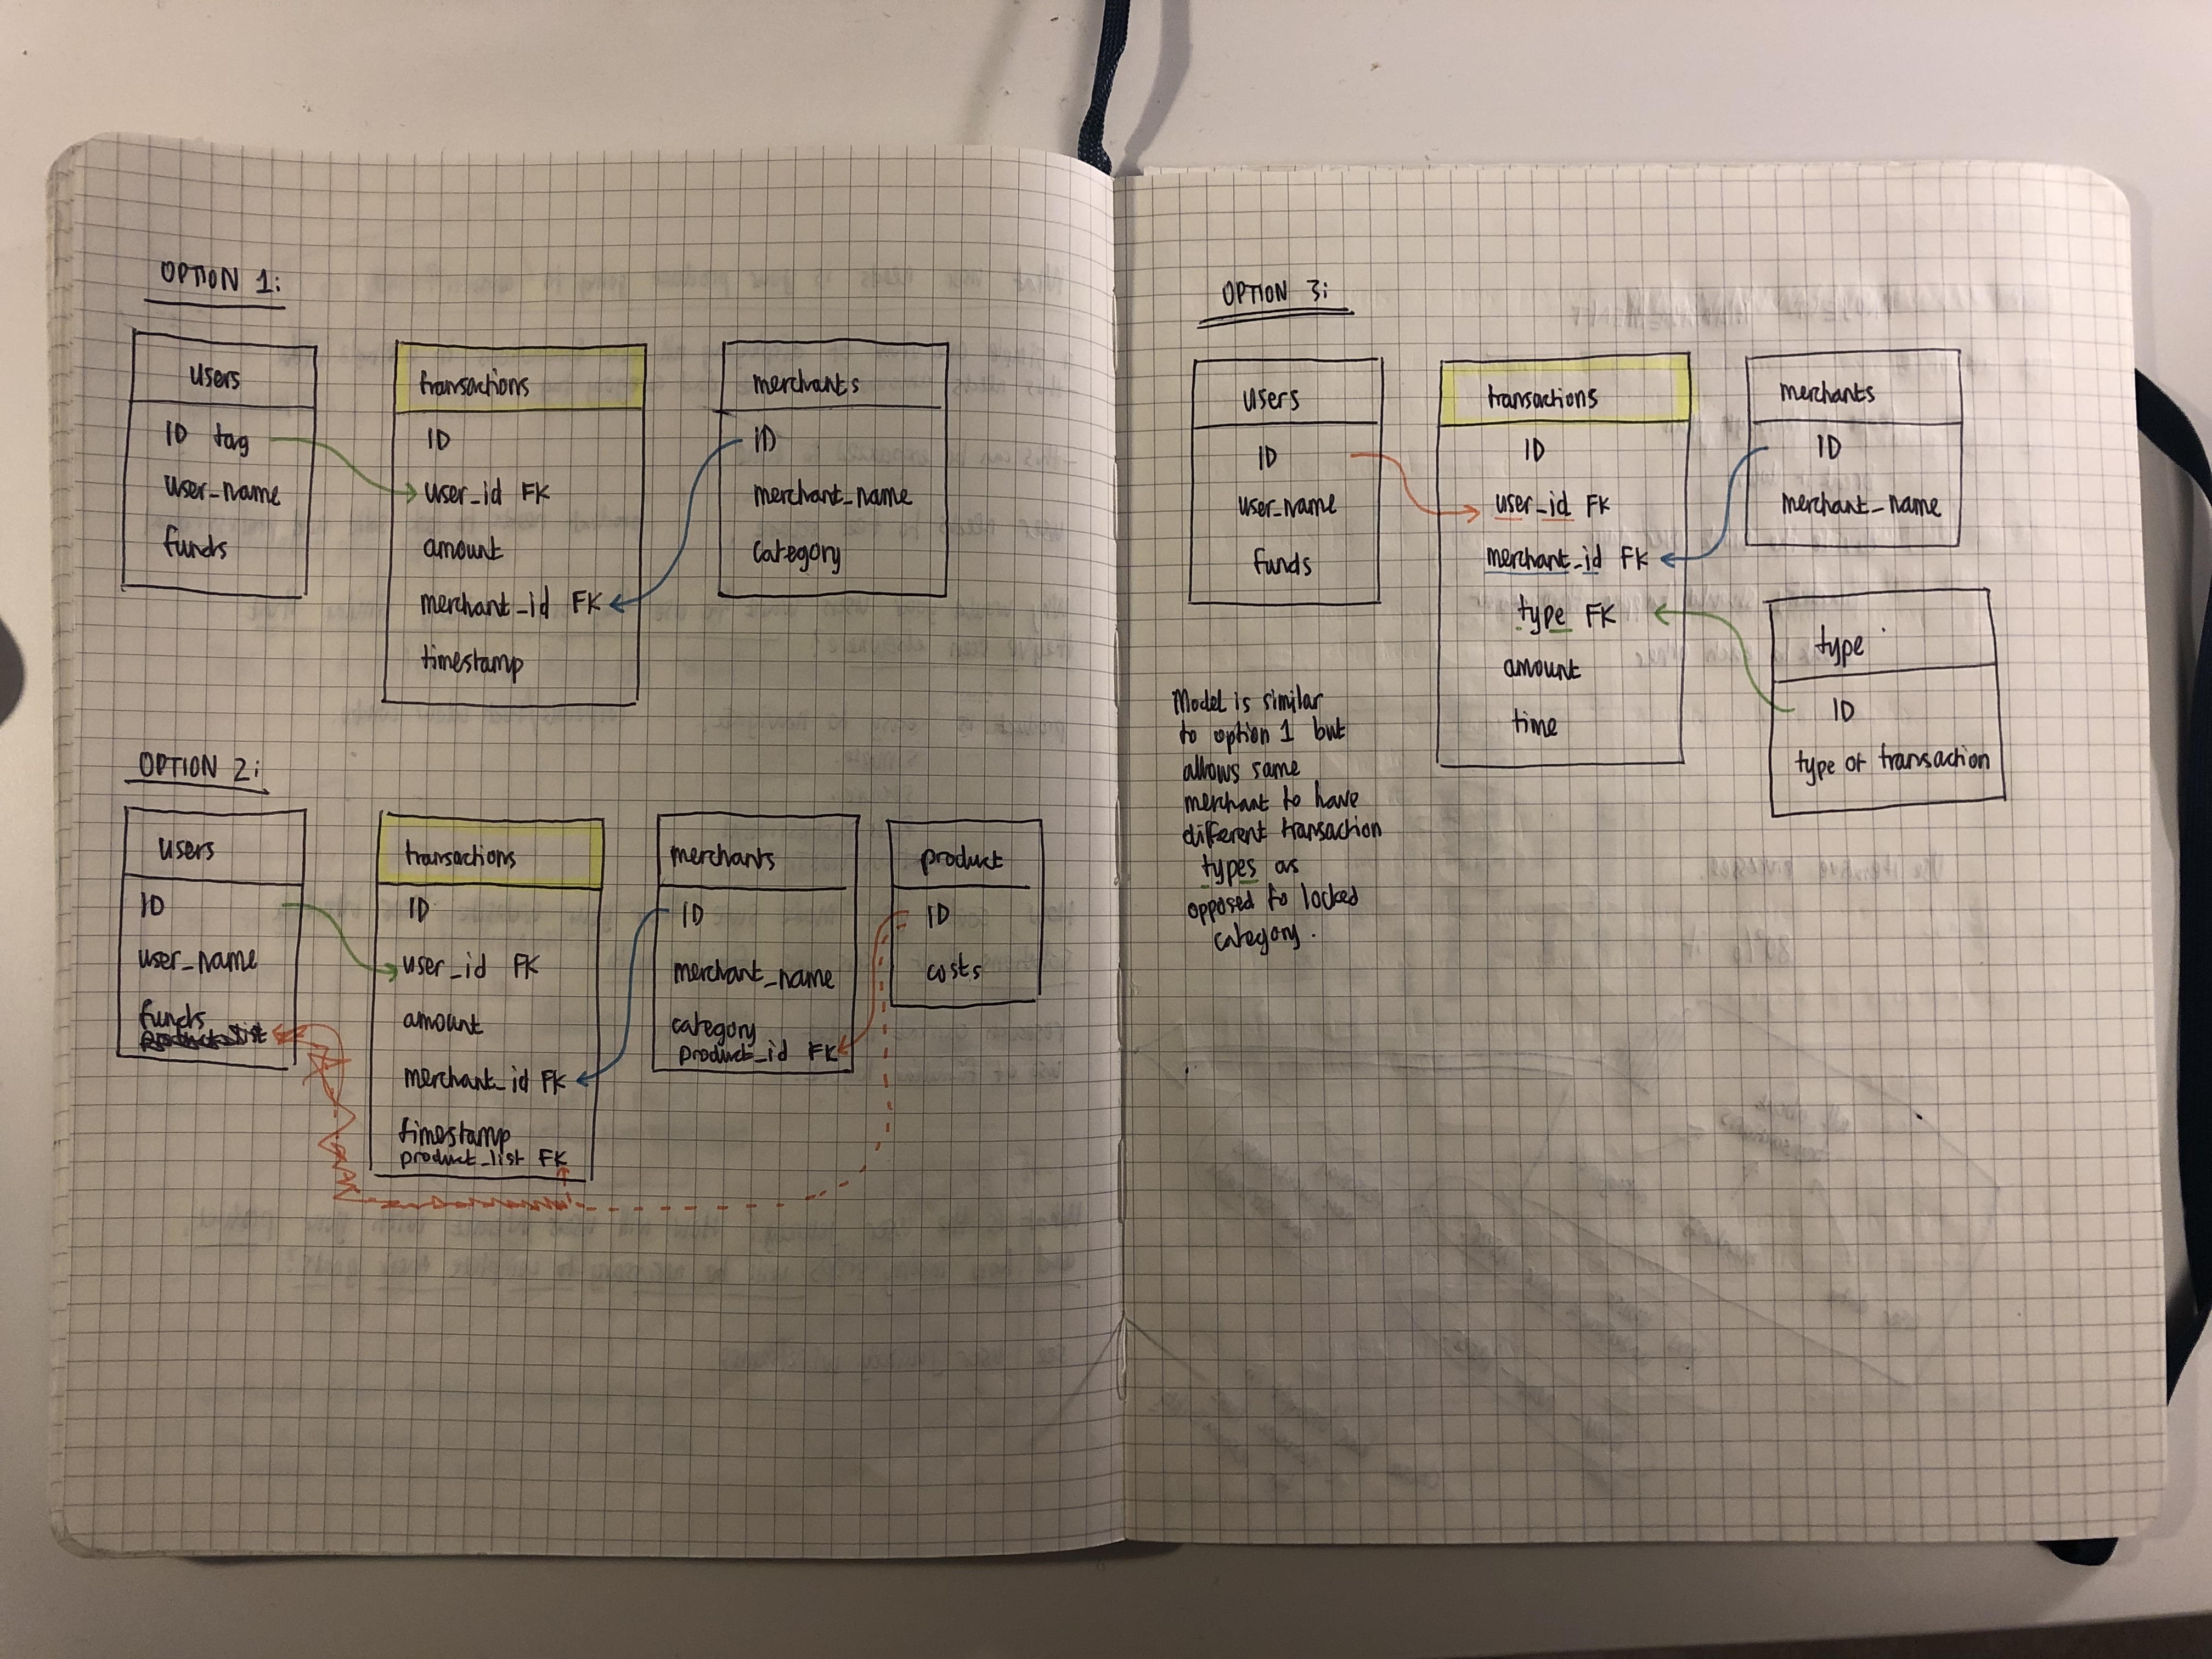 OPTION 1:
users
ID tag
user_name
funds
transactions
ID
user_id FK
amount
merchant_id FK
timestamp
merchants
ID
merchant_name
category
OPTION 2:
users
ID
user_name
funds
transactions
ID
user_id FK
amount
merchant_id FK
timestamp
product_list FK
merchants
ID
merchant_name
category
product_id FK
product
ID
costs
OPTION 3:
users
ID
user_name
funds
transactions
ID
user_id FK
merchant_id FK
type FK
amount
time
merchants
ID
merchant_name
type
ID
type of transaction
Model is similar
to option 1 but
allows same
merchant to have
different transaction
types as
opposed to locked
category.